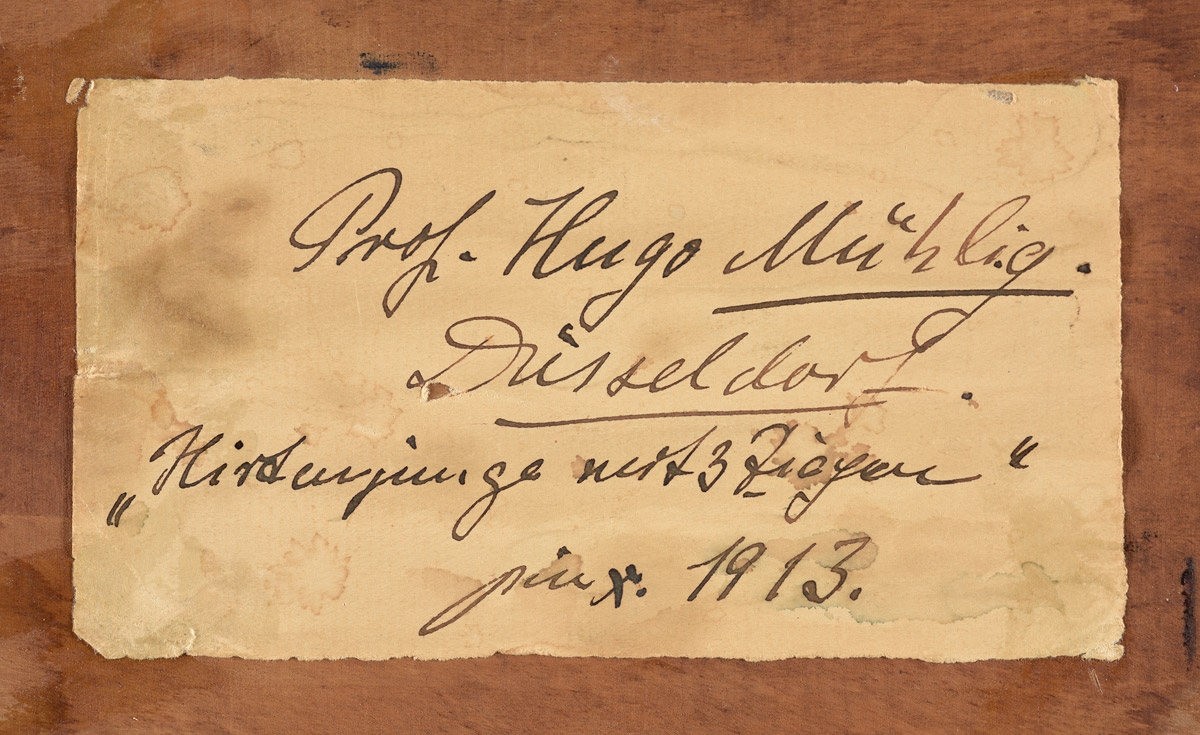 Prof. Hugo Mühlig.
Düsseldorf.
„Hirtenjunge mit 3 Ziegen“
pinx. 1913.